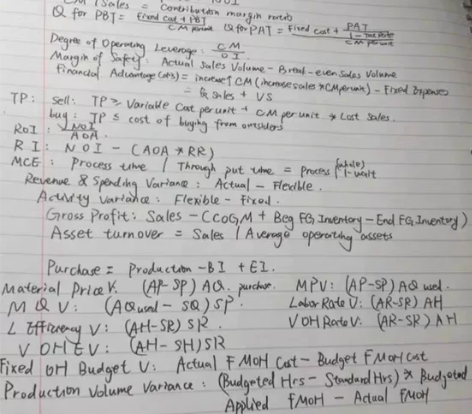 CM / Sales = Contribution margin ratio
Q for PBT = Fixed cost + PBT / CM per unit Q for PAT = Fixed cost + PAT / 1 - tax rate / CM per unit
Degree of Operating Leverage: CM / OI
Margin of Safety: Actual Sales Volume - Break-even Sales Volume
Financial Advantage (dis) = increase↑ CM (increase sales * CM per unit) - Fixed Expenses
= sales + VS
TP: sell: TP ≥ Variable Cost per unit + CM per unit * Lost Sales.
buy: TP ≤ cost of buying from outsiders
ROI: NOI / AOA
RI: NOI - (AOA * RR)
MCE: Process time / Through put time = Process / 1-wait
Revenue & Spending Variance: Actual - Flexible.
Activity Variance: Flexible - Fixed.
Gross Profit: Sales - (COGM + Beg FG Inventory - End FG Inventory)
Asset turnover = Sales / Average operating assets
Purchase = Production - BI + EI.
Material Price V: (AP-SP) AQ purchase. MPV: (AP-SP) AQ used.
MQV: (AQ used - SQ) SP. Labor Rate V: (AR-SR) AH
L Efficiency V: (AH-SR) SR. VOH Rate V: (AR-SR) AH
VOHEV: (AH-SH) SR
Fixed OH Budget V: Actual FMOH Cost - Budget FMOH Cost
Production Volume Variance: (Budgeted Hrs - Standard Hrs) * Budgeted
Applied FMOH - Actual FMOH